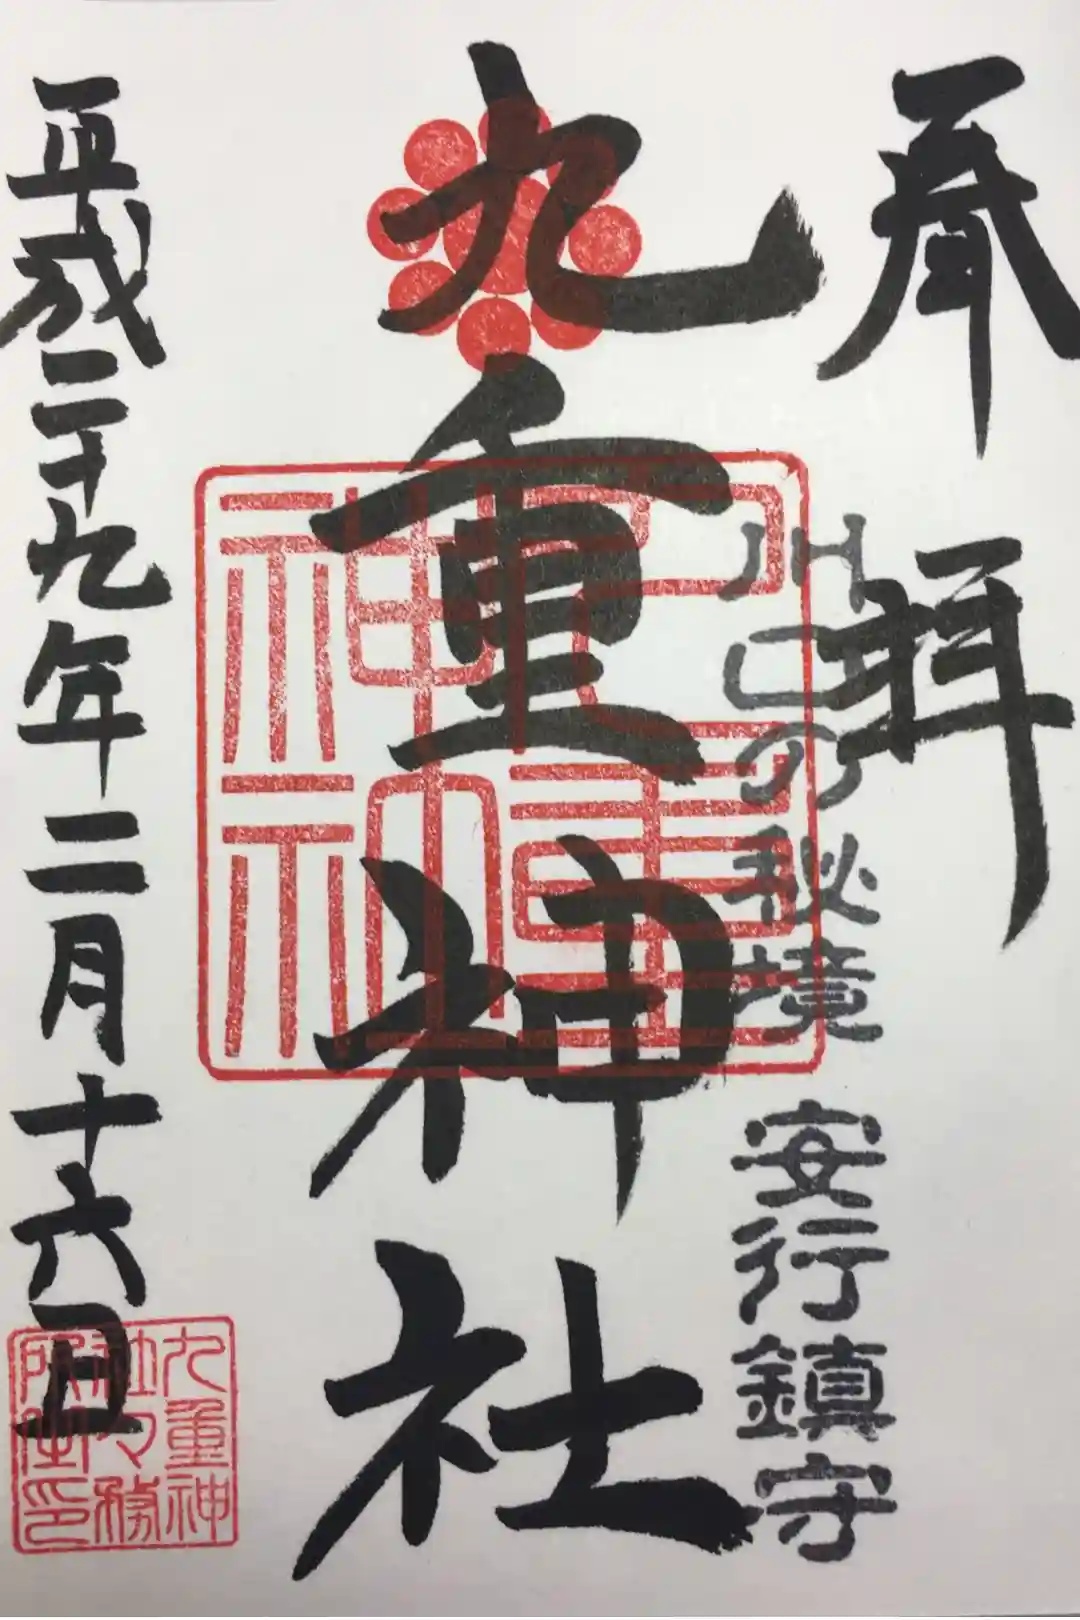 奉拝
川口の秘境 安行鎮守
九重神社
九重神社
平成二十九年二月十六日
九重神
社々務
所之印